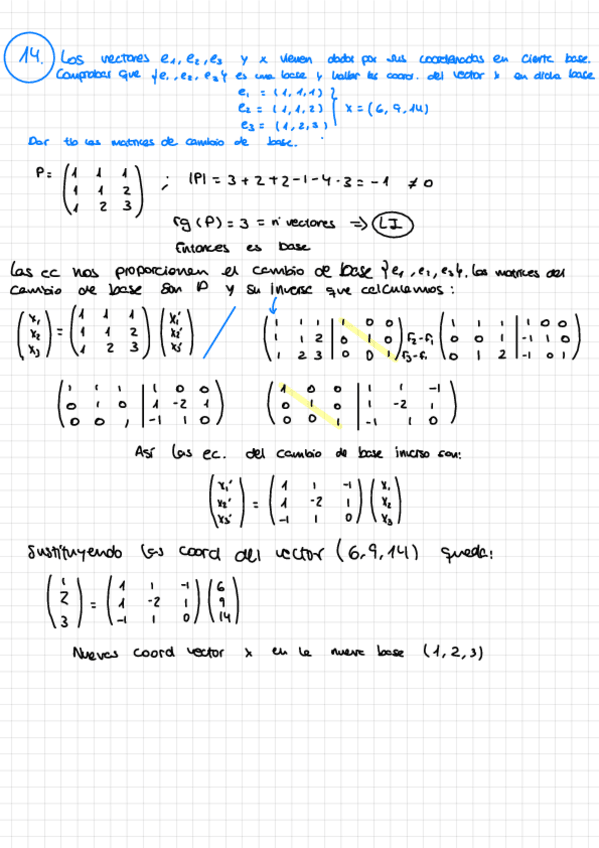 14. Los vectores e1, e2, e3 y x vienen dados por sus coordenadas en cierta base.
Comprobar que {e1, e2, e3} es una base y hallar las coord. del vector x en dicha base
e1 = (1,1,1)
e2 = (1,1,2) } x = (6,9,14)
e3 = (1,2,3)
Dar tb las matrices de cambio de base.
P = ( 1 1 1 ; 1 1 2 ; 1 2 3 ) ; |P| = 3+2+2-1-4-3 = -1 ≠ 0
rg (P) = 3 = nº vectores => LI
Entonces es base
Las ec nos proporcionan el cambio de base {e1, e2, e3}. Las matrices del
cambio de base son P y su inversa que calculamos:
( x1 ; x2 ; x3 ) = ( 1 1 1 ; 1 1 2 ; 1 2 3 ) ( x1' ; x2' ; x3' ) / ( 1 1 1 | 1 0 0 ; 1 1 2 | 0 1 0 ; 1 2 3 | 0 0 1 ) r2-r1 r3-r1 ( 1 1 1 | 1 0 0 ; 0 0 1 | -1 1 0 ; 0 1 2 | -1 0 1 )
( 1 1 1 | 1 0 0 ; 0 1 0 | 1 -2 1 ; 0 0 1 | -1 1 0 ) ( 1 0 0 | 1 1 -1 ; 0 1 0 | 1 -2 1 ; 0 0 1 | -1 1 0 )
Así las ec. del cambio de base inverso son:
( x1' ; x2' ; x3' ) = ( 1 1 -1 ; 1 -2 1 ; -1 1 0 ) ( x1 ; x2 ; x3 )
Sustituyendo las coord del vector (6,9,14) queda:
( 1 ; 2 ; 3 ) = ( 1 1 -1 ; 1 -2 1 ; -1 1 0 ) ( 6 ; 9 ; 14 )
Nuevas coord vector x en la nueva base (1,2,3)